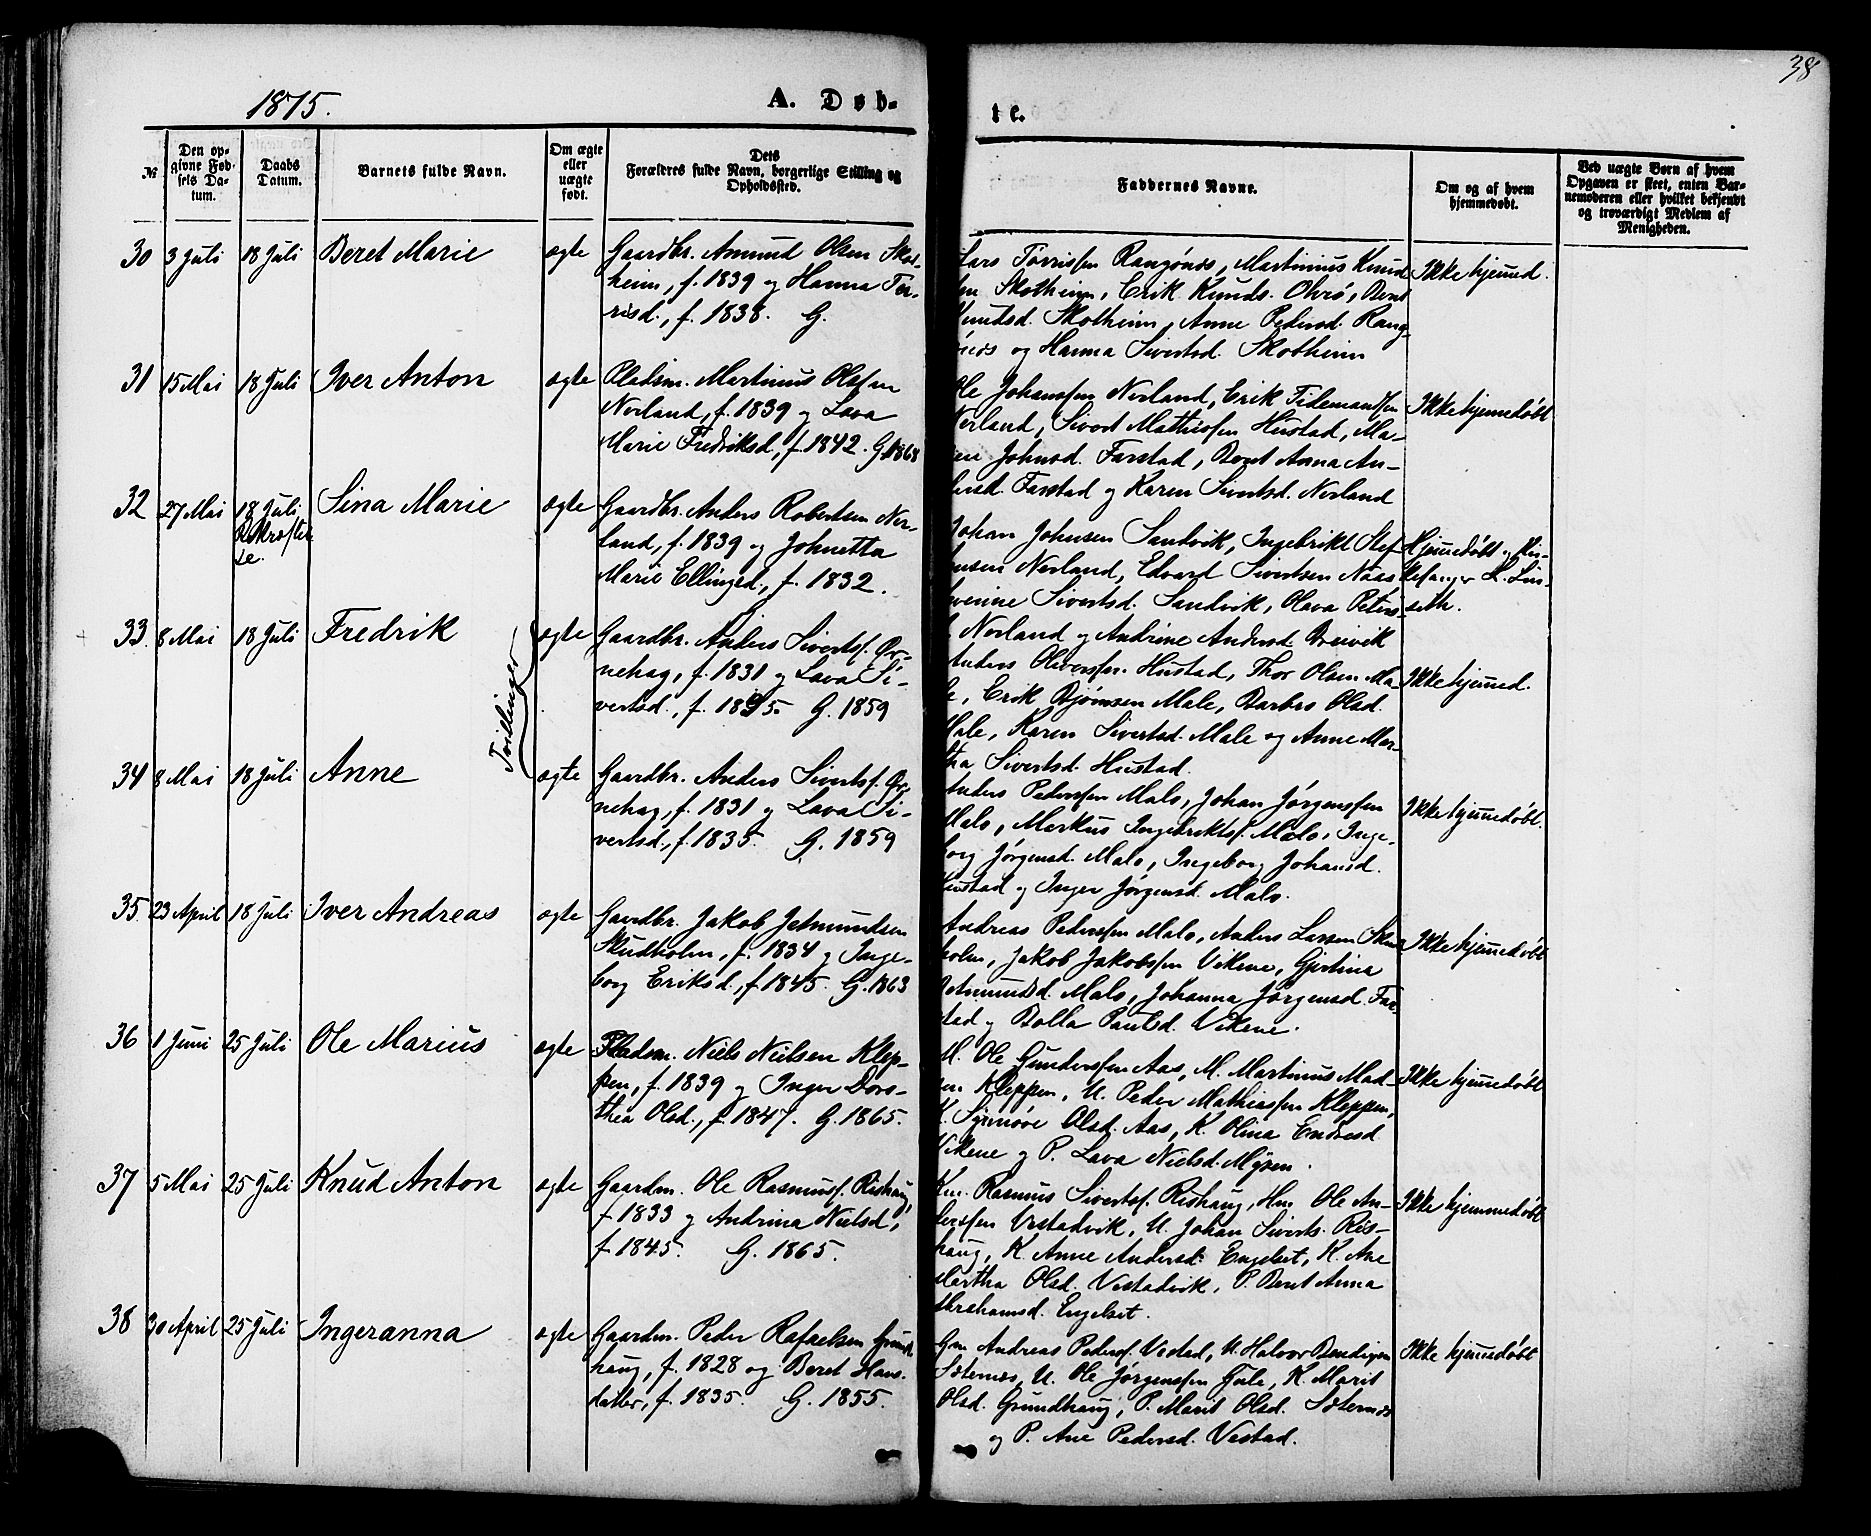 38
1875.
A. Døb-
te.
№
Den op-
givne Fød-
sels Da-
tum.
Daabs
Datum.
Barnets fulde Navn.
Om ægte
eller
uægte
født.
Dets
Forældres fulde Navn, borgerlige Stilling og
Opholdssted.
Faddernes Navne.
Om og af hvem
hjemmedøbt.
Ved uægte Børn af hvem
Opgaven er skeet, enten Bar-
nemoderen eller hvilket bekjendt
og troværdigt Medlem af
Menigheden.
30 3 Juli 18 Juli Beret Marie ægte Gaardbr. Amund Olsen Skot-
heim, f. 1839 og Hanna Tør-
risd., f. 1838. G.
Lars Tørrissen Rangønes, Martinius Knud
sen Skotheim, Erik Knuds. Olvø, Beret
Knutsd. Skotheim, Anne Pedersd. Rang-
ønes og Hanna Sivertsd. Skotheim
Ikke hjemmed.
31 15 Mai 18 Juli Iver Anton ægte Pladsm. Martinus Olsen
Norland, f. 1839 og Lava
Marie Fredriksd., f. 1842. G. 1868
Ole Johanssen Norland, Erik Fidemandsen
Norland, Sivert Mathissen Hustad, Ma-
Johnsd. Farstad, Beret Anna An-
dersd. Farstad og Karen Sivertsd. Norland
Ikke hjemmedøbt
32 27 Mai 18 Juli
Bekræftel
se.
Sina Marie ægte Gaardbr. Anders Robertsen Nor-
land, f. 1839 og Johnetta
Marie Ellingsd., f. 1832.
Johan Johnsen Sandvik, Ingebrikt Stef-
fensen Norland, Edvard Sivertsen Naas
Sivertsd. Sandvik, Olava Peters
d. Norland og Andrine Andersd. Breivik
Hjemmedøbt af
seth.
33. 8 Mai 18 Juli Fredrik ægte Gaardbr. Anders Sivertsf. Ør-
nehag, f. 1831 og Lava Si-
vertsd., f. 1835. G. 1859
Anders Oliverssen Hustad, Thor Olsen Ma-
le, Erik Bjørnsen Male, Barbro Olsd.
Male, Karen Sivertsd. Male og Anne Mar-
tha Sivertsd. Hustad.
Ikke hjemmed.
Tvillinger
34 8 Mai 18 Juli Anne ægte Gaardbr. Anders Sivertsf. Ør-
nehag, f. 1831 og Lava Si-
vertsd., f. 1835. G. 1859
Anders Pederssen Malo, Johan Jørgenssen
Malo, Markus Ingebriktsf. Malo, Inge-
borg Jørgensd. Malo, Ingeborg Johansd.
Hustad og Inger Jørgensd. Malo.
Ikke hjemmedøbt.
35. 23 April 18 Juli Iver Andreas ægte Gaardbr. Jakob Jetmundsen
Skudholm, f. 1834 og Inge-
borg Eriksd., f. 1845. G. 1863
Andreas Pederssen Malo, Anders Larsen Skud
holm, Jakob Jakobssen Vikene, Gjertina
Jetmundsd. Malo, Johanna Jørgensd. Far-
stad og Bolla Paulsd. Vikene.
Ikke hjemmedøbt
36 1 Juni 25 Juli Ole Marius ægte Pladsm. Niels Nielsen Klep-
pen, f. 1839 og Inger Doro-
thea Olsd., f. 1847. G. 1865.
M. Ole Gunderssen Aas, M. Martinus Mad-
sen Kleppen, U. Peder Mathiassen Kleppen,
K. Synnøve Olsd. Aas, K. Olina Endresd
Vikene og P. Lava Nielsd. Myren.
Ikke hjemmedøbt
37 5 Mai 25 Juli Knud Anton ægte Gaardm. Ole Rasmusf. Rishaug,
f. 1833 og Andrina Nielsd.,
f. 1845. G. 1865.
Km. Rasmus Sivertsf. Rishaug, Hm Ole An-
derssen Vestadvik, U. Johan Siverts. Ris-
haug, K. Anne Andersd. Engelset, K. Ane
Martha Olsd. Vestadvik, P. Beret Anna
Abrahamsd. Engelset.
Ikke hjemmedøbt
38 30 April 25 Juli Ingeranna ægte Gaardm. Peder Rafaelsen Grund-
haug, f. 1828 og Beret Hans-
datter, f. 1835. G. 1855.
Gm Andreas Pedersf. Vestad, U. Halvor Bendixen
Sæternes, U. Ole Jørgenssen Gule, K. Marit
Olsd. Grundhaug, P. Marit Olsd. Sæternes
og P. Ane Pedersd. Vestad.
Ikke hjemmedøbt